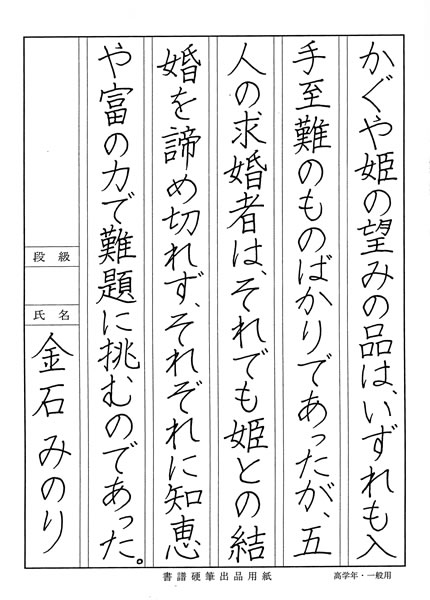 かぐや姫の望みの品は、いずれも入
手至難のものばかりであったが、五
人の求婚者は、それでも姫との結
婚を諦め切れず、それぞれに知恵
や富の力で難題に挑むのであった。
段級
氏名
金石みのり
書譜硬筆出品用紙
高学年・一般用